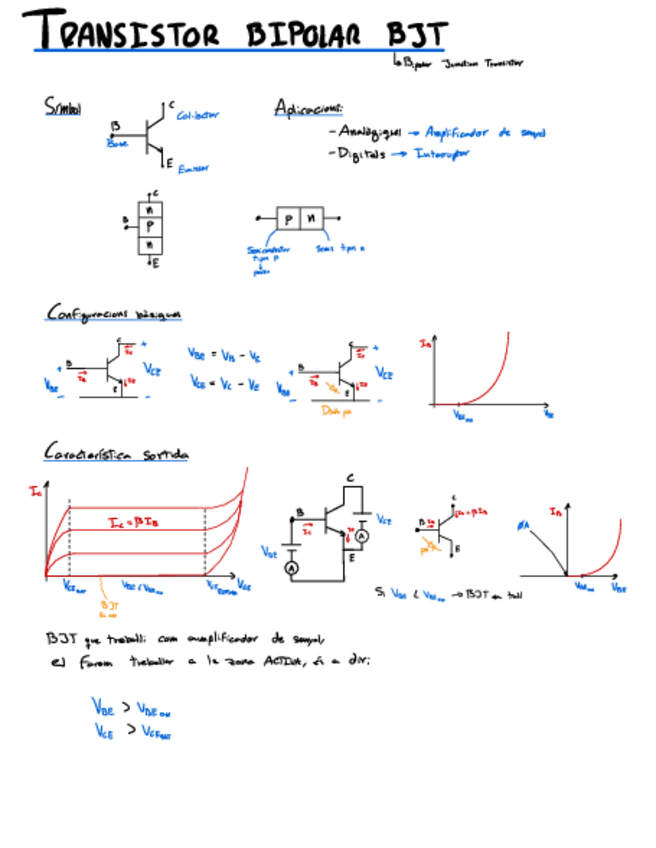 TRANSISTOR BIPOLAR BJT
Bipolar Junction Transistor
Símbol
C
Col·lector
B
Base
E
Emissor
Aplicacions:
- Analògiques → Amplificador de senyal
- Digitals → Interruptor
C
n
B
P
n
E
P n
Semiconductor
tipus P
Semic tipus n
Configuracions bàsiques
C
+
B
E
VBE
VCE
VBE = VB - VE
VCE = VC - VE
C
+
B
E
VBE
VCE
IB
VBE
Característica sortida
IC
IC = βIB
VCEsat
VCE
BJT
C
B
E
VBE
VCE
A
A
C
B
E
IC = βIB
Si VBE < VBEon → BJT en tall
IB
VBEon
VBE
BJT que treballi com amplificador de senyal,
el farem treballar a la zona ACTIVA, és a dir:
VBE > VBEon
VCE > VCEsat